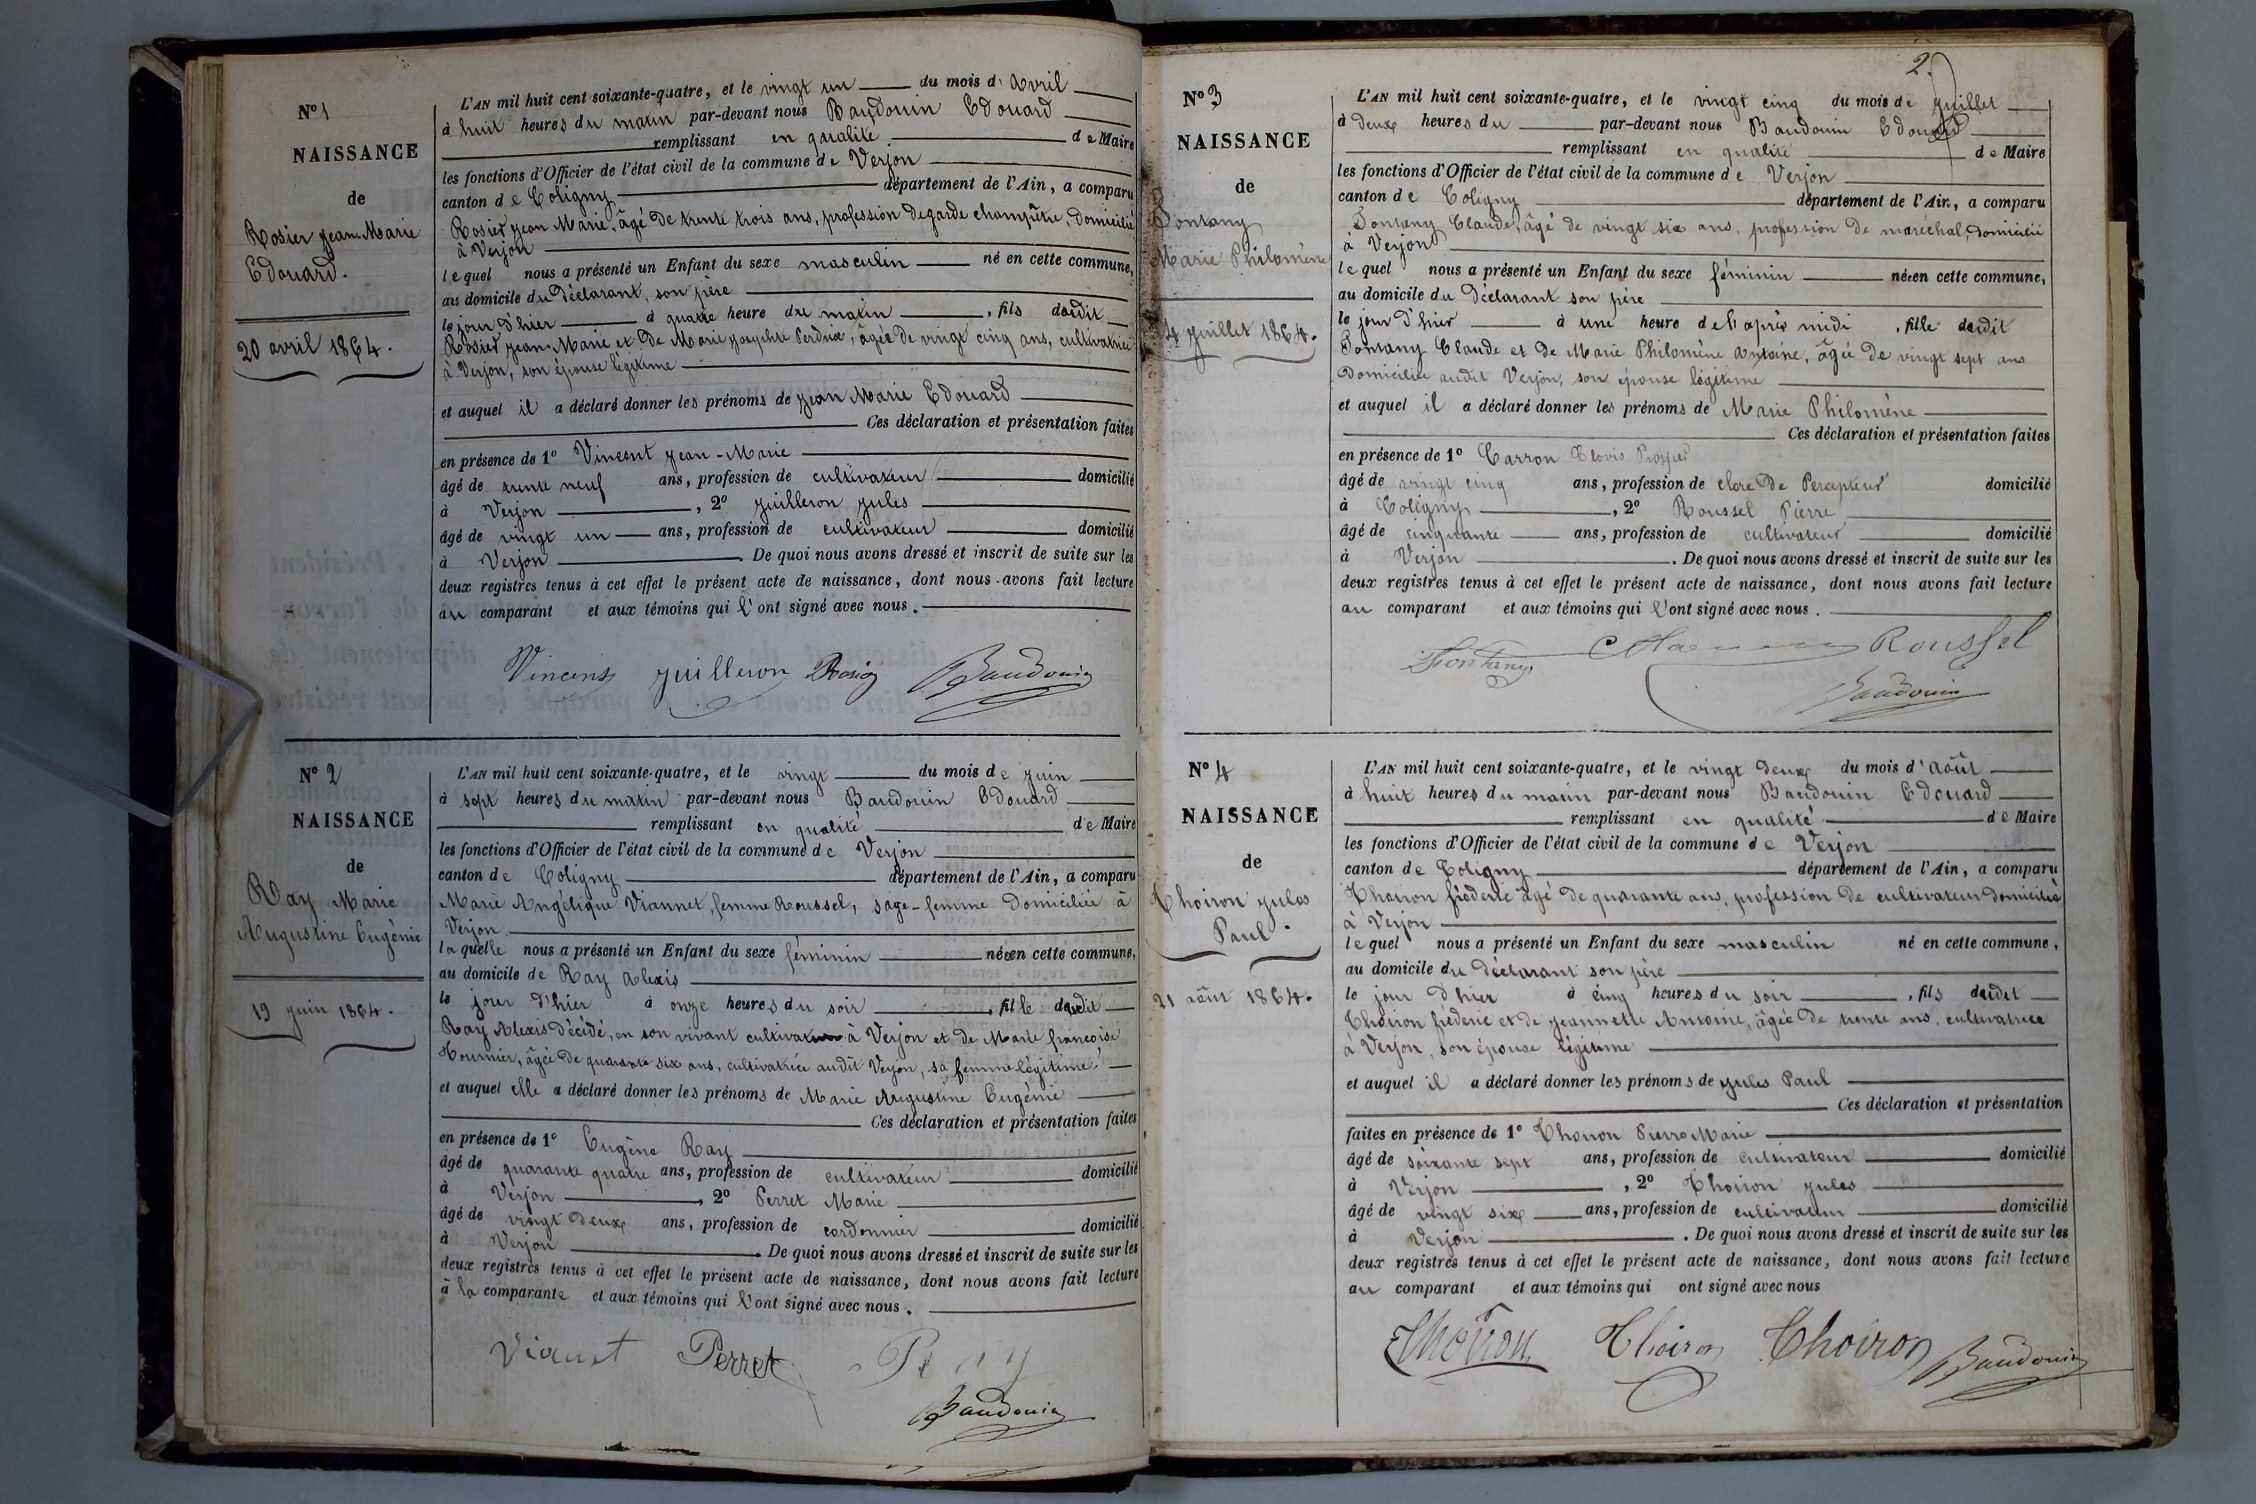 N° 1
NAISSANCE
de
Rosier Jean-Marie
Edouard.
20 avril 1864.
L'AN mil huit cent soixante-quatre, et le vingt un du mois d'avril
à huit heures du matin par-devant nous Baudouin Edouard
remplissant en qualité de Maire
les fonctions d'Officier de l'état civil de la commune de Verjon
canton de Coligny département de l'Ain, a comparu
Rosier Jean Marie, âgé de trente trois ans, profession de garde champêtre, domicilié
à Verjon
lequel nous a présenté un Enfant du sexe masculin né en cette commune,
au domicile du déclarant, son père
le jour d'hier à quatre heure du matin, fils dudit
Rosier Jean-Marie et de Marie Perdrix, âgée de vingt cinq ans, cultivatrice
à Verjon, son épouse légitime
et auquel il a déclaré donner les prénoms de Jean Marie Edouard
Ces déclaration et présentation faites
en présence de 1° Vincent Jean-Marie
âgé de trente neuf ans, profession de cultivateur domicilié
à Verjon, 2° Juilleron Jules
âgé de vingt un ans, profession de cultivateur domicilié
à Verjon. De quoi nous avons dressé et inscrit de suite sur les
deux registres tenus à cet effet le présent acte de naissance, dont nous avons fait lecture
au comparant et aux témoins qui l'ont signé avec nous.
Vincent Juilleron Rosier Baudouin
N° 2
NAISSANCE
de
Ray Marie
Augustine Eugénie
19 juin 1864.
L'AN mil huit cent soixante-quatre, et le vingt du mois de juin
à sept heures du matin par-devant nous Baudouin Edouard
remplissant en qualité de Maire
les fonctions d'Officier de l'état civil de la commune de Verjon
canton de Coligny département de l'Ain, a comparu
Marie Angélique Viannet, femme Roussel, sage-femme domiciliée à
Verjon
laquelle nous a présenté un Enfant du sexe féminin née en cette commune,
au domicile de Ray Alexis
le jour d'hier à onze heures du soir, fille dudit
Ray Alexis décédé, en son vivant cultivateur à Verjon et de Marie françoise
Tournier, âgée de quarante six ans, cultivatrice audit Verjon, sa femme légitime
et auquel elle a déclaré donner les prénoms de Marie Augustine Eugénie
Ces déclaration et présentation faites
en présence de 1° Eugène Ray
âgé de quarante quatre ans, profession de cultivateur domicilié
à Verjon, 2° Perret Marie
âgé de vingt deux ans, profession de cordonnier domicilié
à Verjon. De quoi nous avons dressé et inscrit de suite sur les
deux registres tenus à cet effet le présent acte de naissance, dont nous avons fait lecture
à la comparante et aux témoins qui l'ont signé avec nous.
Perret Ray
Baudouin
2.
N° 3
NAISSANCE
de
Fontany
Marie Philomène
24 juillet 1864.
L'AN mil huit cent soixante-quatre, et le vingt cinq du mois de juillet
à deux heures du par-devant nous Baudouin Edouard
remplissant en qualité de Maire
les fonctions d'Officier de l'état civil de la commune de Verjon
canton de Coligny département de l'Ain, a comparu
Fontany Claude, âgé de vingt six ans, profession de maréchal, domicilié
à Verjon
lequel nous a présenté un Enfant du sexe féminin née en cette commune,
au domicile du déclarant son père
le jour d'hier à une heure de l'après midi, fille dudit
Fontany Claude et de Marie Philomène Antoine, âgée de vingt sept ans
domiciliée audit Verjon, son épouse légitime
et auquel il a déclaré donner les prénoms de Marie Philomène
Ces déclaration et présentation faites
en présence de 1° Carron Clovis Prosper
âgé de vingt cinq ans, profession de clerc de Percepteur domicilié
à Coligny, 2° Roussel Pierre
âgé de cinquante ans, profession de cultivateur domicilié
à Verjon. De quoi nous avons dressé et inscrit de suite sur les
deux registres tenus à cet effet le présent acte de naissance, dont nous avons fait lecture
au comparant et aux témoins qui l'ont signé avec nous.
Fontany Roussel
Baudouin
N° 4
NAISSANCE
de
Thoiron Jules
Paul.
21 août 1864.
L'AN mil huit cent soixante-quatre, et le vingt deux du mois d'août
à huit heures du matin par-devant nous Baudouin Edouard
remplissant en qualité de Maire
les fonctions d'Officier de l'état civil de la commune de Verjon
canton de Coligny département de l'Ain, a comparu
Thoiron fréderic âgé de quarante ans, profession de cultivateur domicilié
à Verjon
lequel nous a présenté un Enfant du sexe masculin né en cette commune,
au domicile du déclarant son père
le jour d'hier à cinq heures du soir, fils dudit
Thoiron fréderic et de Jeannette Antoine, âgée de trente ans, cultivatrice
à Verjon, son épouse légitime
et auquel il a déclaré donner les prénoms de Jules Paul
Ces déclaration et présentation
faites en présence de 1° Thoiron Pierre Marie
âgé de soixante sept ans, profession de cultivateur domicilié
à Verjon, 2° Thoiron Jules
âgé de vingt six ans, profession de cultivateur domicilié
à Verjon. De quoi nous avons dressé et inscrit de suite sur les
deux registres tenus à cet effet le présent acte de naissance, dont nous avons fait lecture
au comparant et aux témoins qui ont signé avec nous
Thoiron Thoiron Thoiron Baudouin